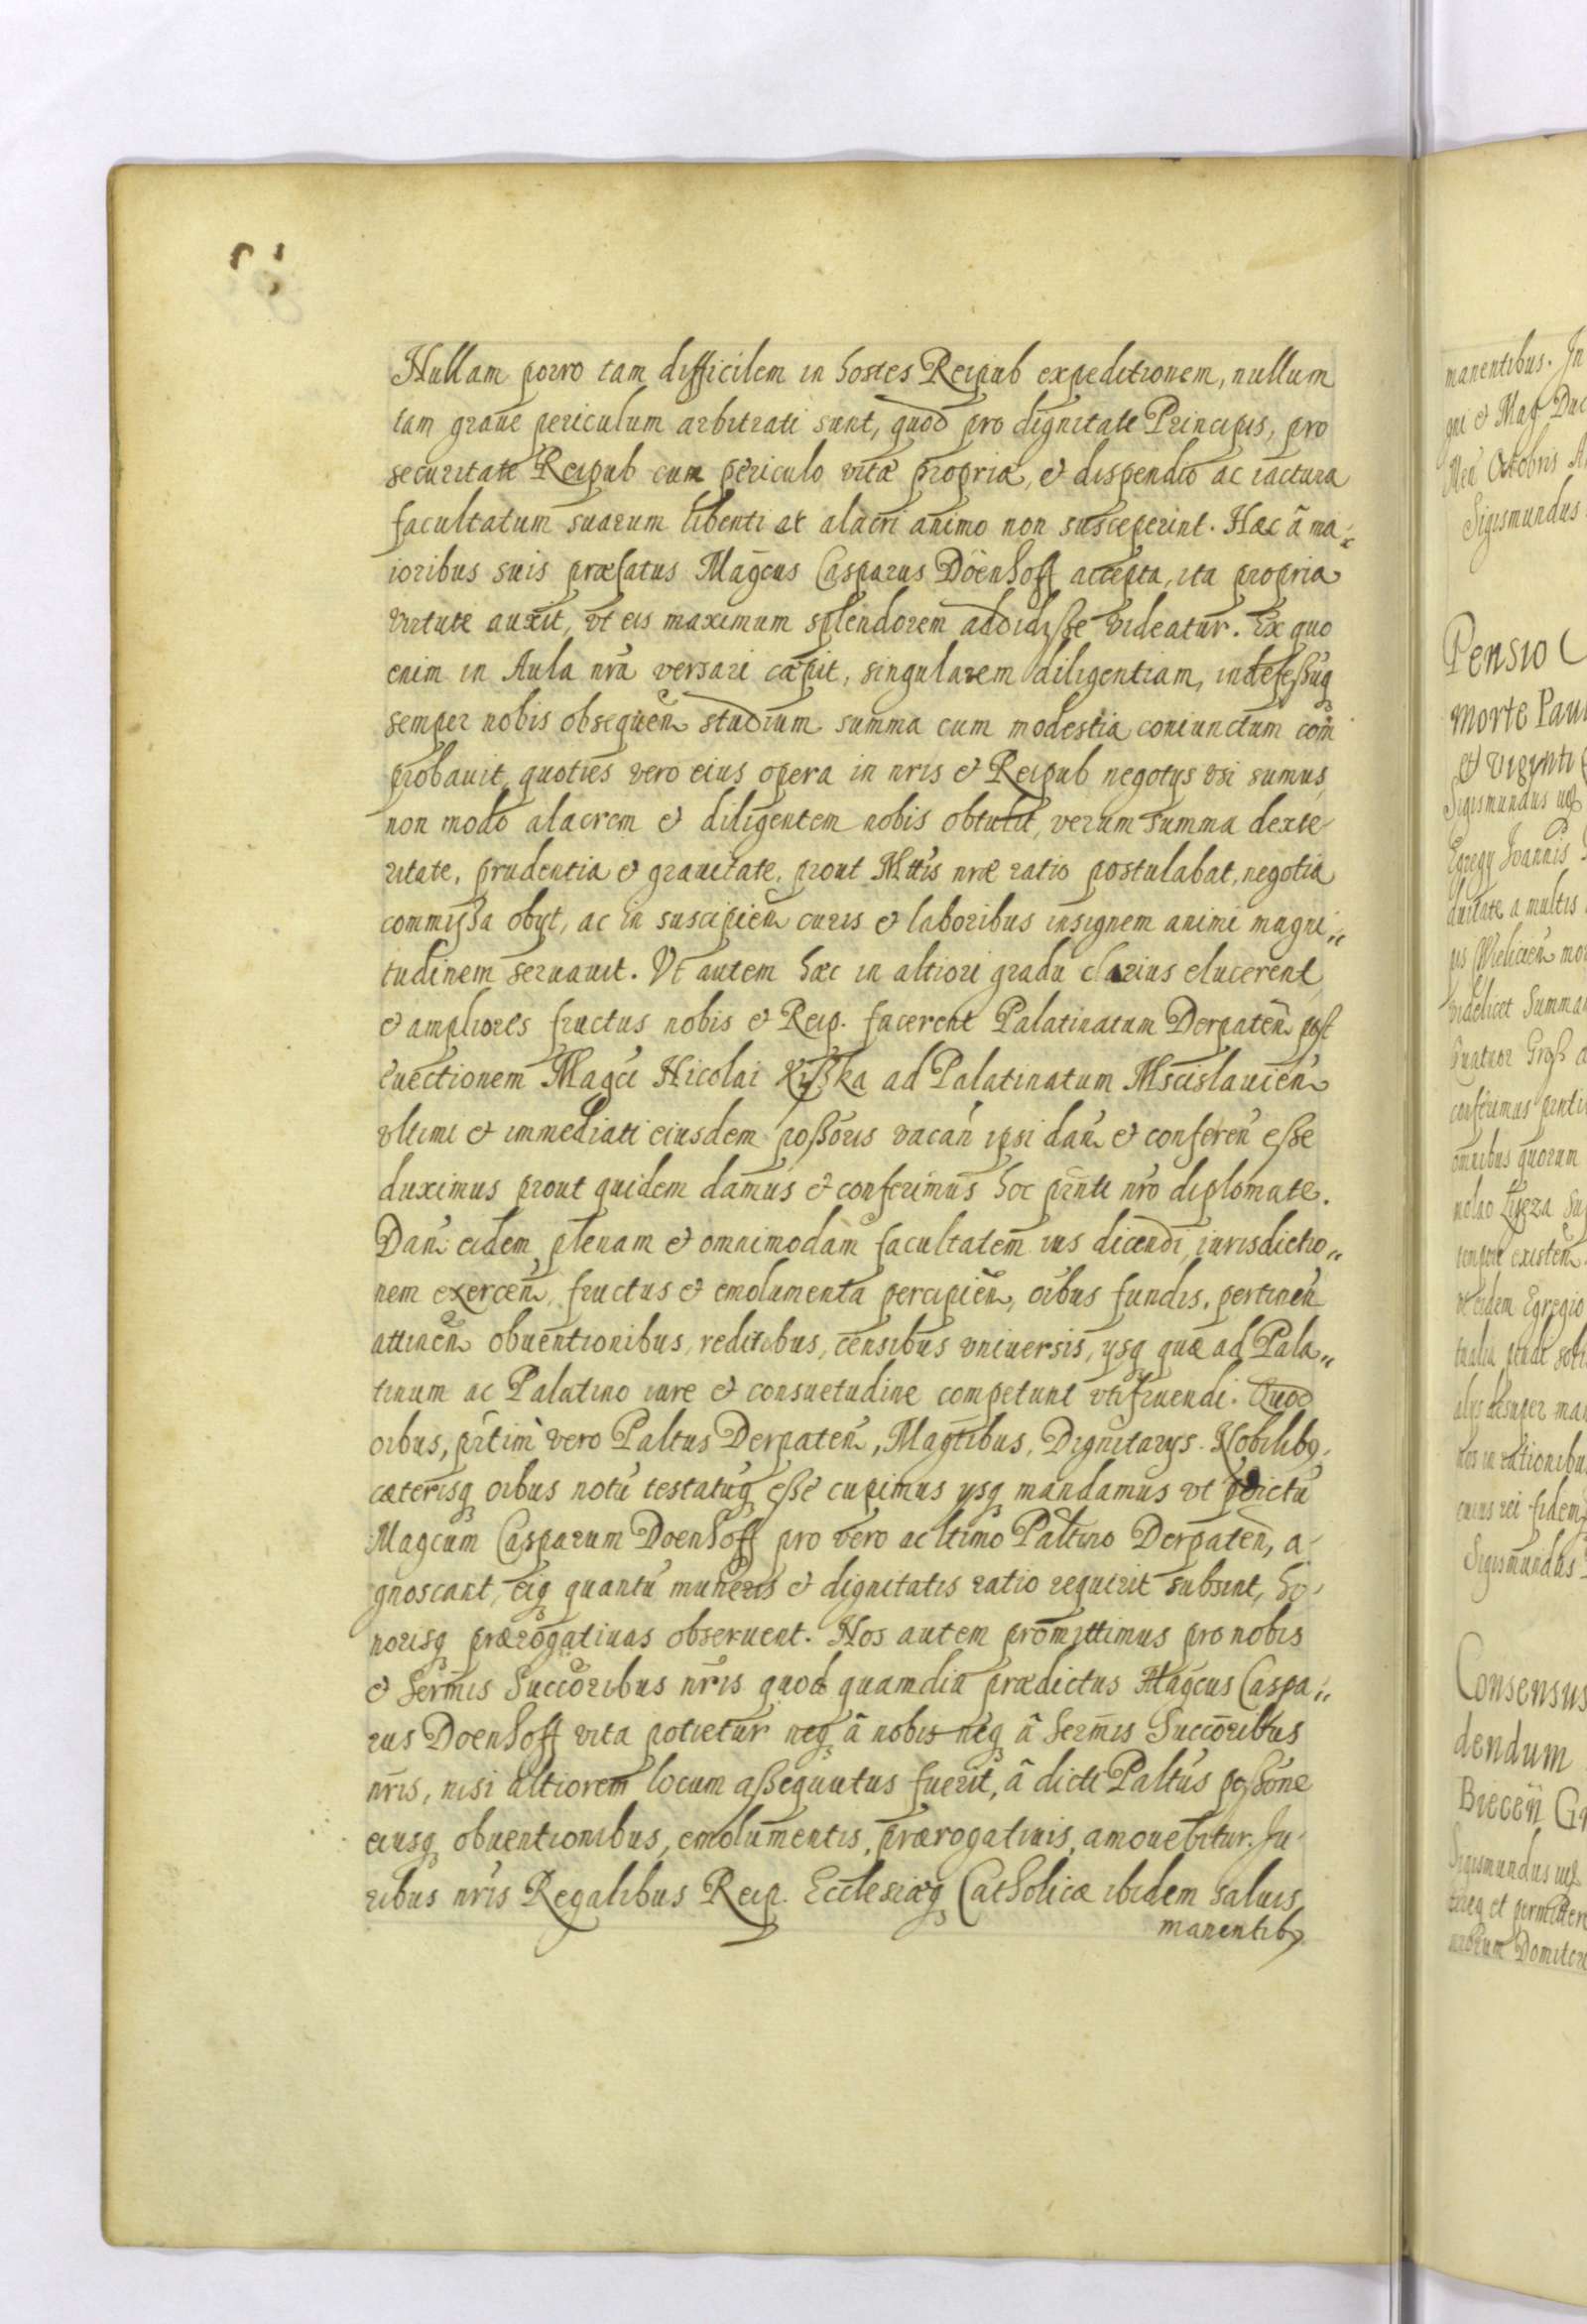 Nullam porro tam difficilem in hostes Reipub expeditionem, nullum
tam graue periculum arbitrati sunt, quod pro dignitate Principis, pro
securitate Reipub cum periculo vitæ propria, et dispendio ac iactura
facultatum suarum libenti at alacri animo non susceperint. Hæc â ma=
ioribus suis præfatus Magcus Casparus Döenhoff accepta, ita propria
virtute auxit, vt eis maximum splendorem addidisse videatur. Ex quo
enim in Aula nra versari cæpit, singularem diligentiam, indefessūq
semper nobis obsequen studium summa cum modestia coniunctum com
probauit, quoties vero eius opera in nris et Reipub negotys vsi sumus,
non modo alacrem et diligentem nobis obtulit, verum summa dexte
ritate, prudentia et grauitate, prout Mttis nræ ratio postulabat, negotia
commissa obyt, ac in suscipien curis et laboribus insignem animi magni=
tudinem seruauit. Vt autem hæc in altiori gradu clarius elucerent
et ampliores fructus nobis et Reip. facerent Palatinatum Derpaten post
euectionem Magci Nicolai Kißka ad Palatinatum Mscislauien
vltimi et immediati eiusdem possoris vacan ipsi dan et conferen esse
duximus prout quidem damus et conferimus hoc pnti nro diplomate.
Dan eidem plenam et omnimodam facultatem ius dicendi, iurisdictio=
nem exercen, fructus et emolumenta percipien, oibus fundis, pertinen
attinen obuentionibus, reditibus, censibus vniuersis, ysq quæ ad Pala=
tinum ac Palatino iure et consuetudine competunt vtifruendi. Quod
oibus, prtim vero Paltus Derpaten, Magtibus, Dignitarys. Nobilibq,
cæterisq oibus notū testatūq esse cupimus ysq mandamus vt pdictū
Magcum Casparum Doenhoff pro vero ac ltimo Paltino Derpaten, a
gnoscant, eiq quantū muneris et dignitatis ratio requirit subsint, ho
norisq prærogatiuas obseruent. Nos autem promittimus pro nobis
et Sermis Succoribus nris quod quamdiu prædictus Magcus Caspa=
rus Doenhoff vita potietur neq â nobis neq â Sermis Succoribus
nris, nisi altiorem locum assequutus fuerit, â dicti Paltus possone
eiusq obuentionibus, emolumentis, prærogatiuis, amouebitur. Iu
ribus nris Regalibus Reip. Ecclesiæq Catholicæ ibidem saluis
manentibq
manentibus. In
Sigismundus
Pensio
morte Paul
et viginti
Sigismundus
Egregy Joannis
duitate a multis
videlicet Summa
conferimus
omnibus quorum
vt eidem Egregio
Sigismundus
Consensus
dendum
Biecen
Sigismundus